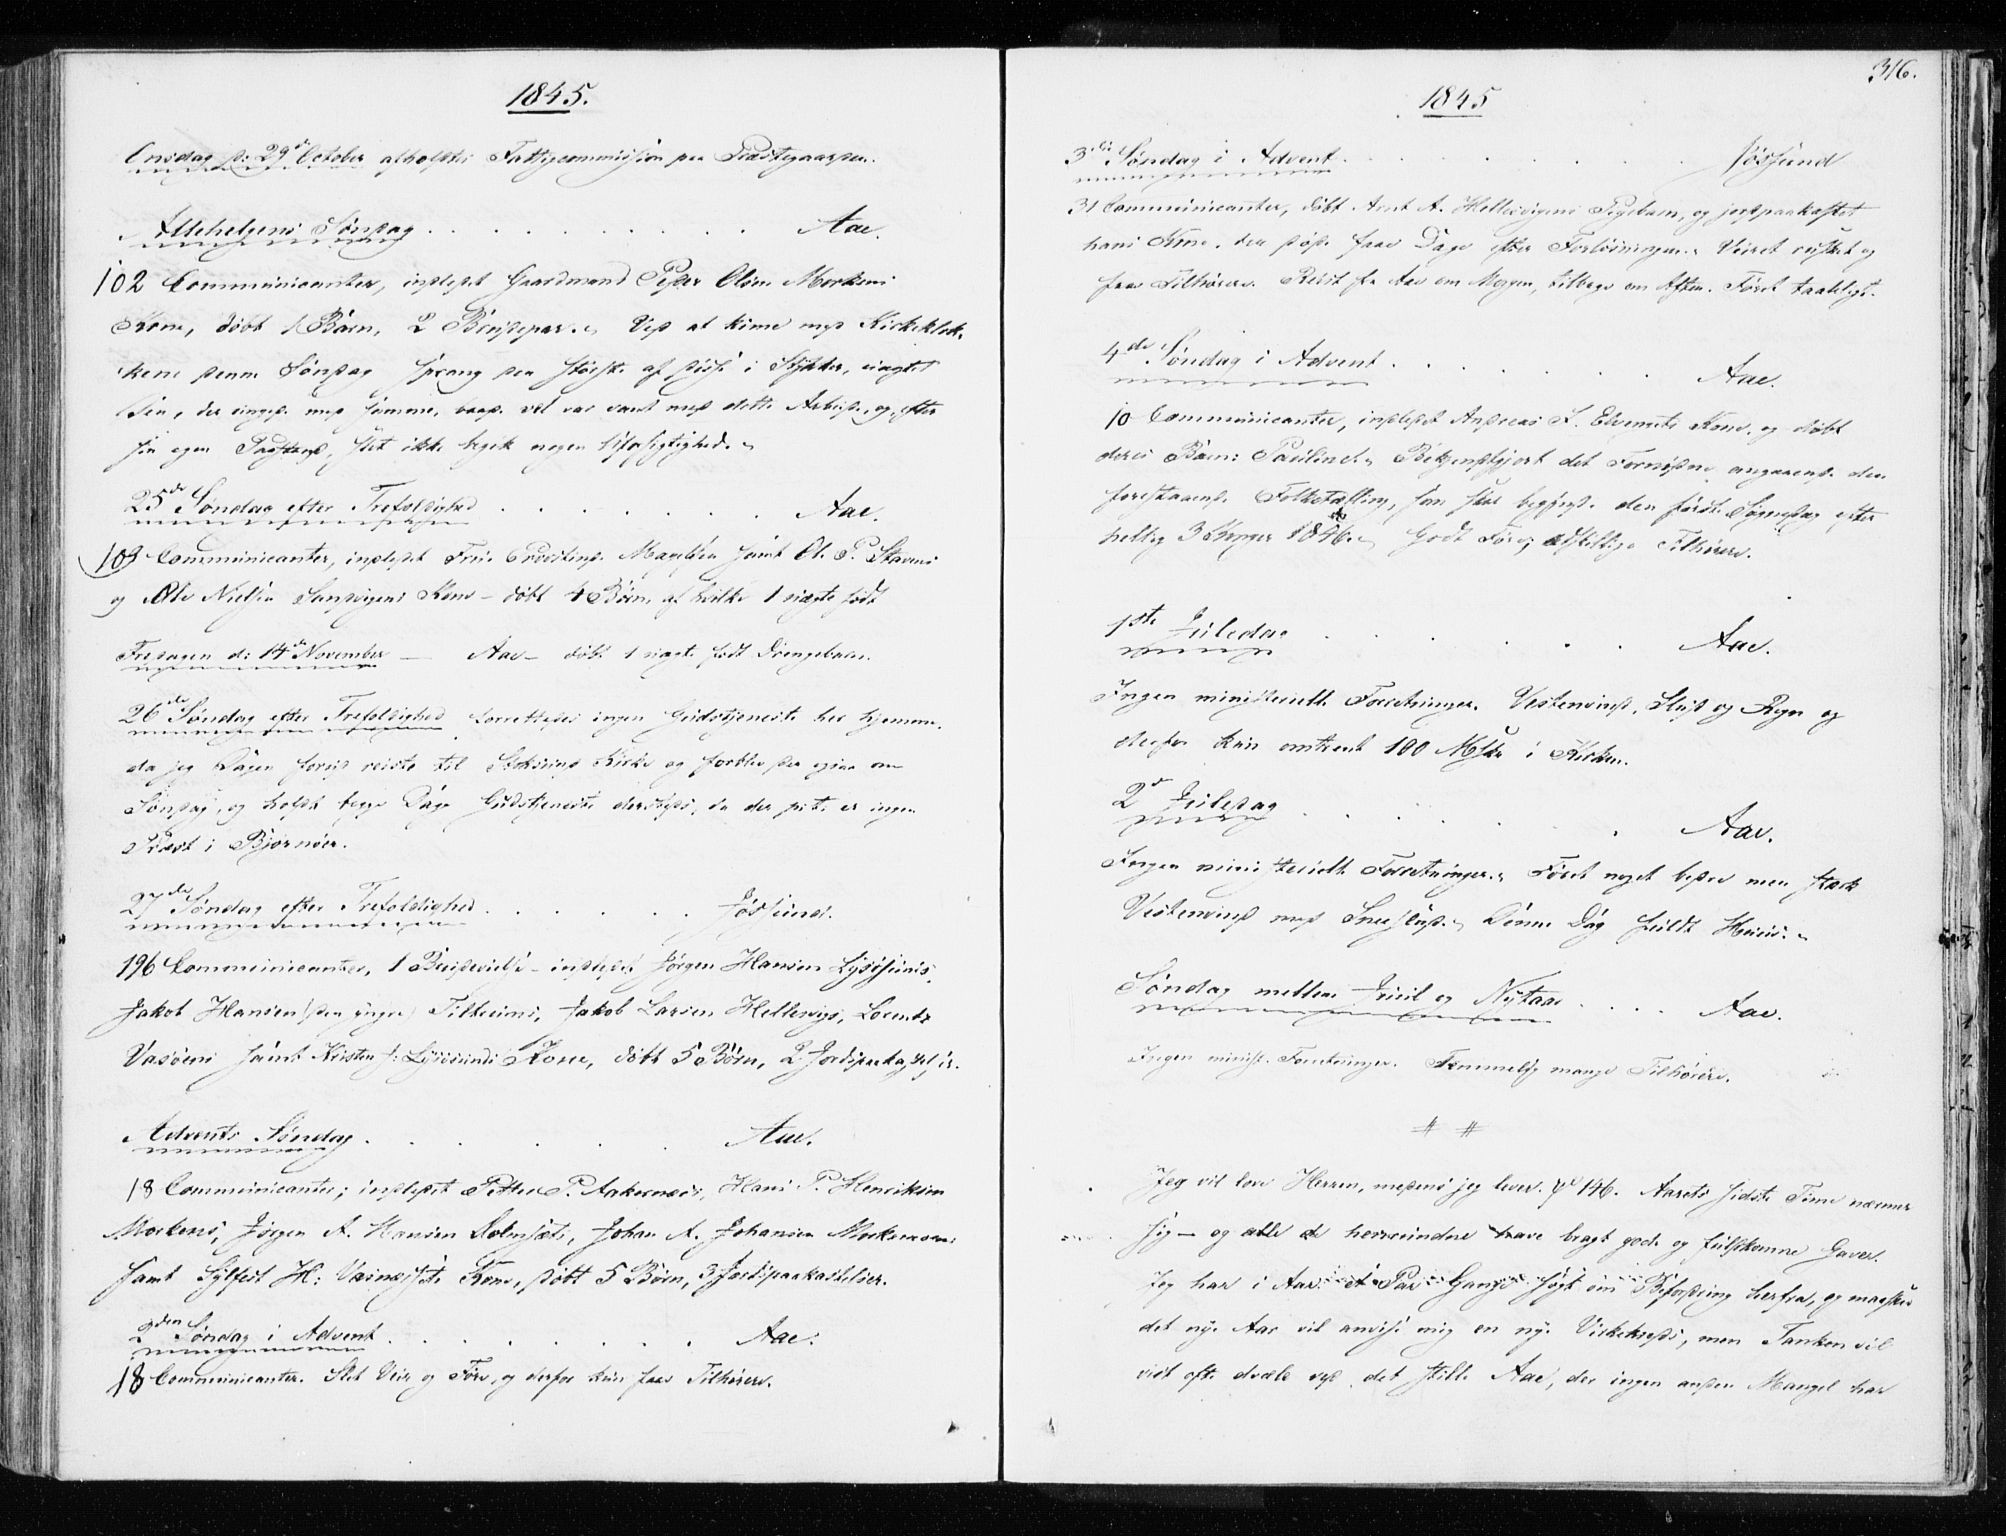 1845.
Onsdag d: 29de October afholdtes Fattigcommission paa Præstegaarden.
Allehelgens Søndag . . . . . . . . . . Aae.
102 Communicanter, indledet Gaardmand Peder Olsen Morkens
Kone, døbt 1 Barn, 2 Brudepar. Ved at kime med Kirkeklok-
kene denne Søndag sprang den største af disse i Stykker, uagtet
den, der ringede med samme, baade vel var vant med dette Arbeide, og efter
sin egen Paastand, slet ikke begik nogen Uforsigtighed.
25de Søndag efter Trefoldighed . . . . . . . Aae.
109 Communicanter, indledet Frue Provstinde samt Ol. P. Stavens
og Ole Nielsen Sandvigens Kone – døbt 4 Børn, af hvilke 1 uægte født
Fredagen d: 14de November – Aae – døbt 1 uægte født Drengebarn.
26de Søndag efter Trefoldighed forrettedes ingen Gudstjeneste her hjemme,
da jeg Dagen forud reiste til Stoksund Kirke og forblev der over
Søndag, og holdt begge Dage Gudstjeneste dersteds, da der nu er ingen
Præst i Bjørnør.
27de Søndag efter Trefoldighed . . . . . . Jøssund.
196 Communicanter, 1 Brudevielse – indledet Jørgen Hansen Lysøsunds,
Jakob Hansen (den yngre) Tiltrums, Jakob Larsen Hellevigs, Lorentz
Vasøens samt Kirsten J: Lysøsunds Kone, døbt 5 Børn, 2 Jordspaakastelser.
Advents Søndag . . . . . . Aae.
18 Communicanter; indledet Petter P. Aakernæs, Hans P. Henriksen
Morkens, Jørgen A. Hansen Holmsæts, Johan A. Johansen
samt Sylfest H: Kone, døbt 5 Børn, 3 Jordspaakastelser.
2den Søndag i Advent . . . . . . . . Aae.
18 Communicanter. Slet Veir og Føre, og derfor kun faae Tilhørere.
316.
1845
3die Søndag i Advent . . . . . . . . Jøssund
31 Communicanter, døbt Arnt A. Hellesvigens Pigebarn, og jordpaakastet
hans Kone, der døde faae Dage efter Forløsningen. Veiret og
faae Tilhørere. Reist fra Aae om Morgen, tilbage om Aften. Føret taaleligt.
4de Søndag i Advent . . . . . . Aae.
10 Communicanter, indledet Andreas S. Kone, og døbt
deres Barn: Pauline. Bekjendtgjort det Fornødne angaaende den
forestaaende Folketælling, som skal begynde den første Søgnedag efter
hellig 3 Konger 1846. Godt Føre; adskillige Tilhørere.
1ste Juledag . . . . . Aae.
Ingen ministerielle Forretninger. Vestenvind, Slud og Regn og
derfor kun omtrent 100 Msker i Kirken.
2d Juledag . . . . . . Aae.
Ingen ministerielle Forretninger. Føret noget bedre men stærk
Vestenvind med Sneeslud. Denne Dag fuldt Huus.
Søndag mellem Juul og Nytaar . . . Aae.
Ingen minist. Forretninger. Temmelig mange Tilhørere.
# #
Jeg vil love Herren, medens jeg lever. ψ 146. Aarets sidste Time nærmer
sig – og alle de henrundne have bragt gode og fuldkomne Gaver.
Jeg har i Aar et Par Gange søgt om Befordring herfra, og maaskee
det nye Aar vil anvise mig en ny Virkekreds, men Tanken vil
vist ofte dvæle ved det stille Aae, der ingen anden Mangel har